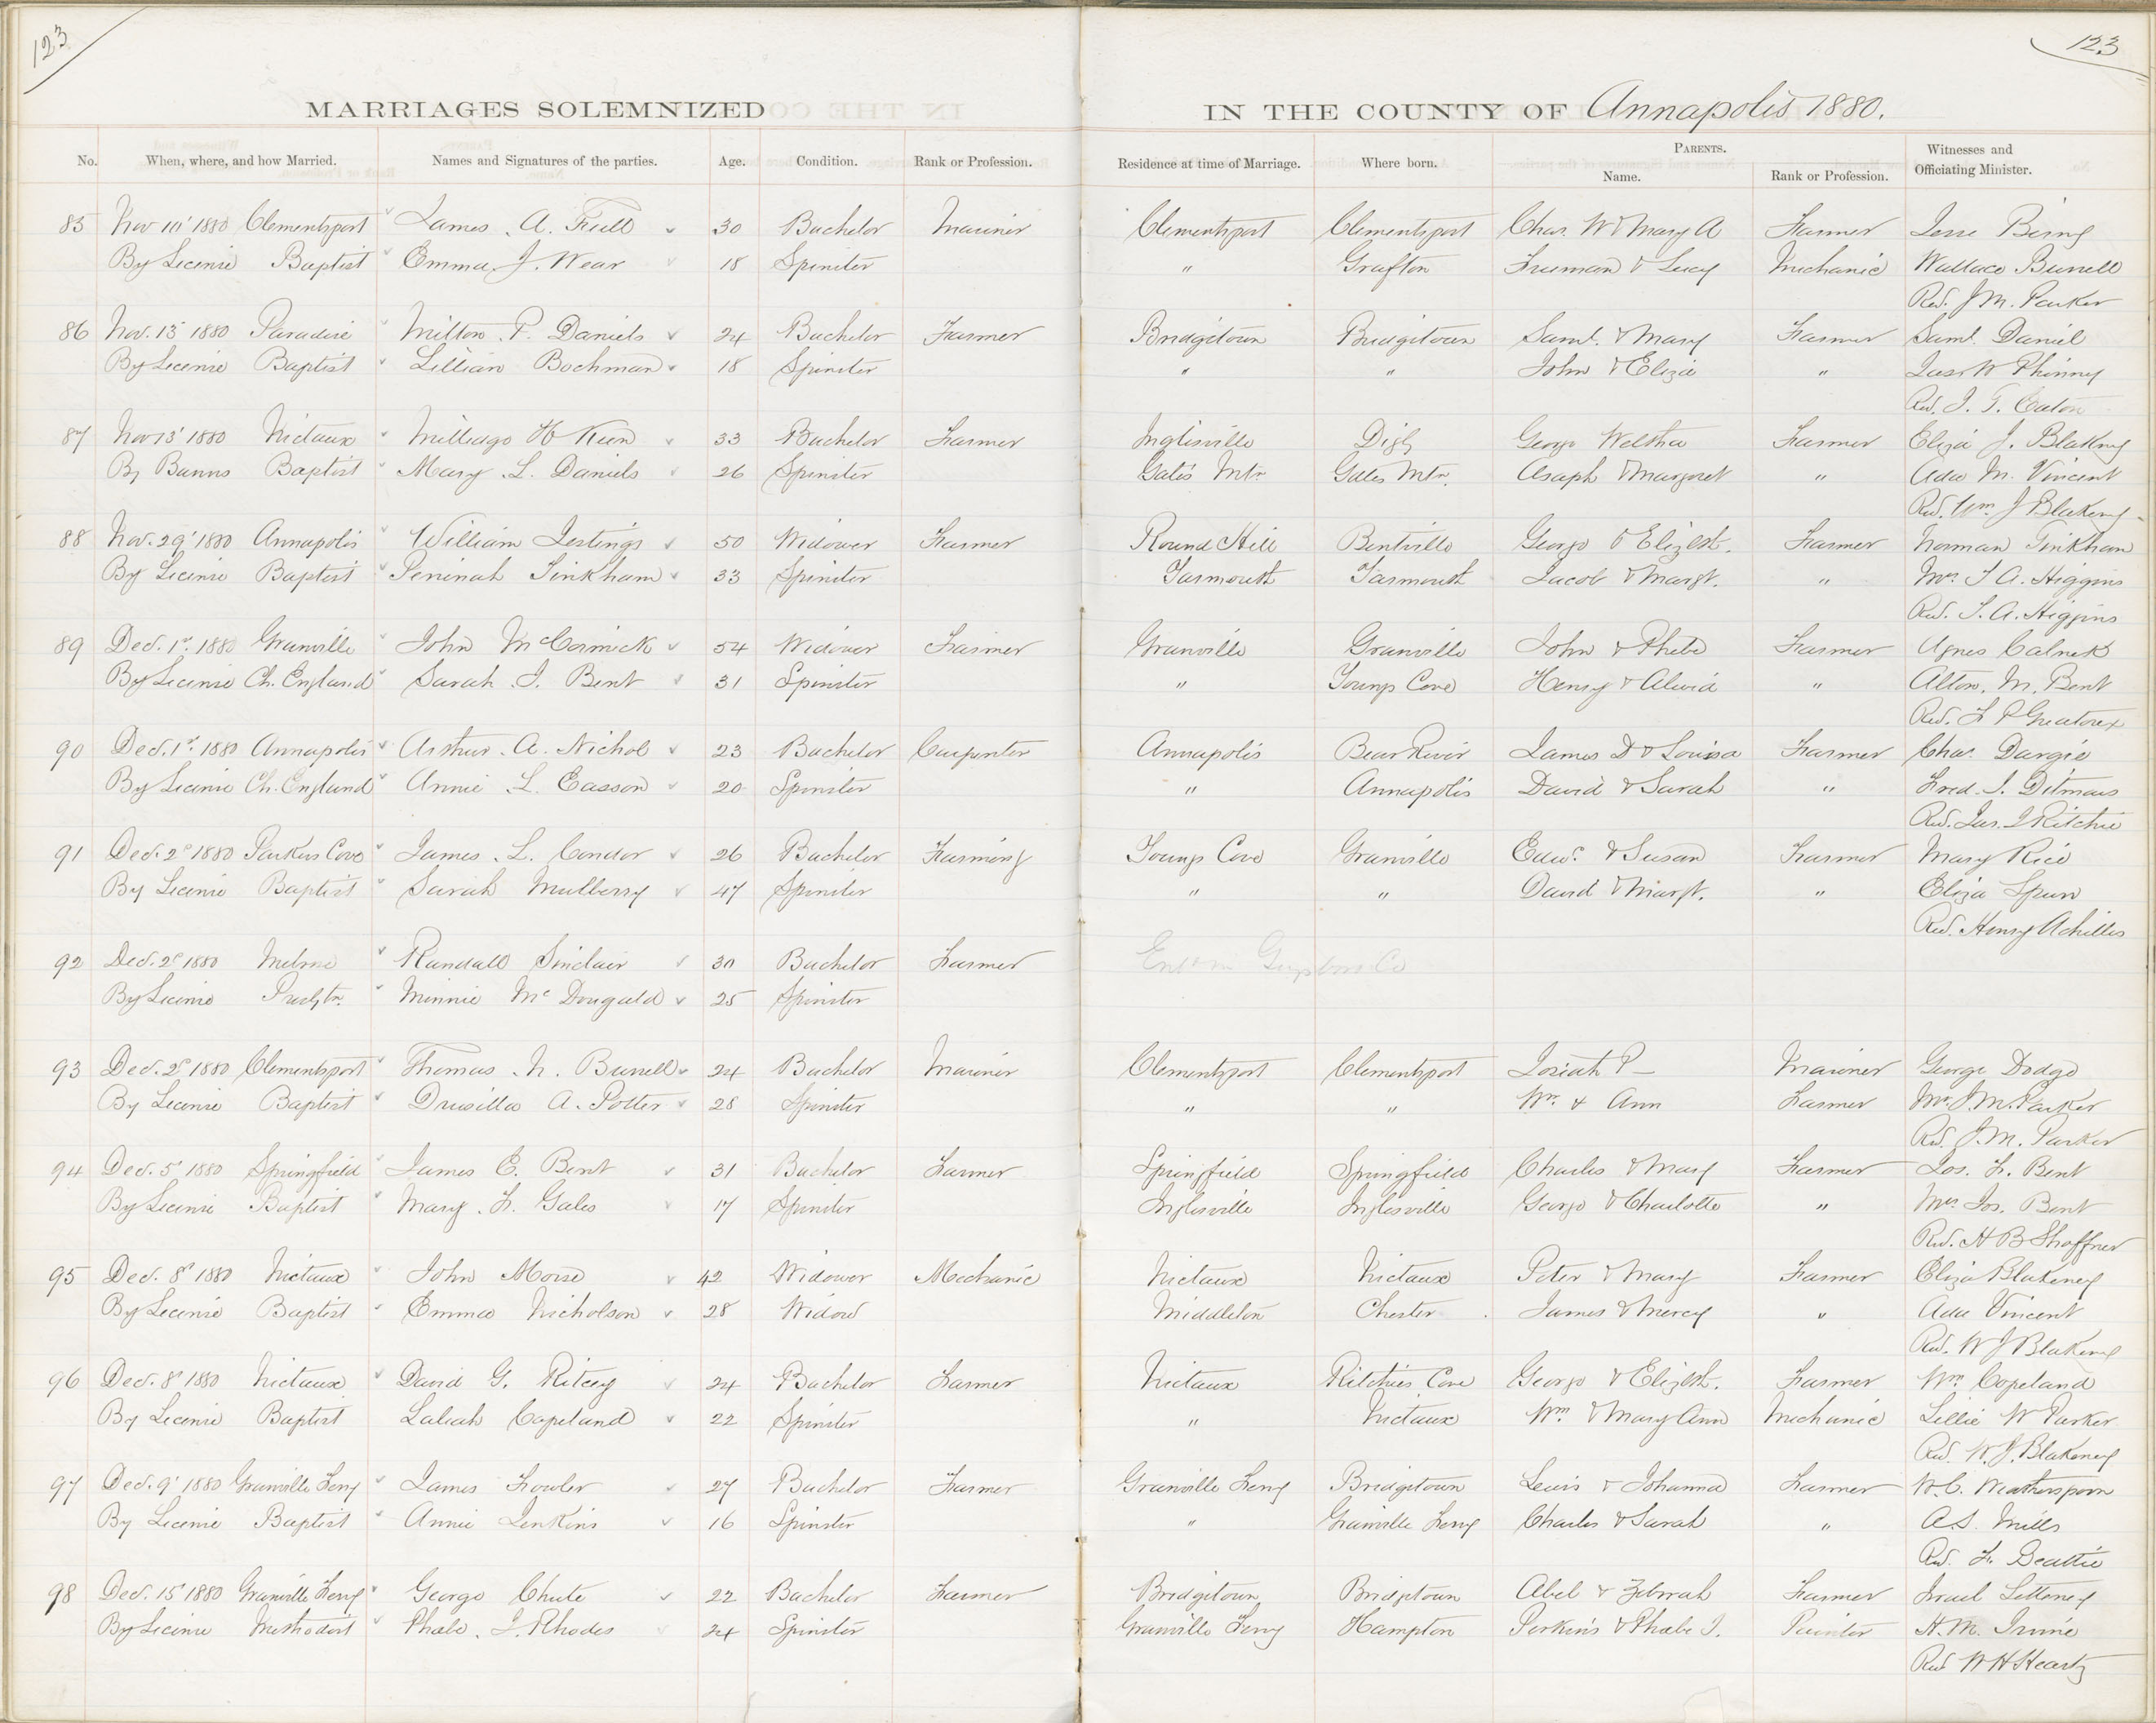 123
123
MARRIAGES SOLEMNIZED IN THE COUNTY OF Annapolis 1880.
No. When, where, and how Married. Names and Signatures of the parties. Age. Condition. Rank or Profession. Residence at time of Marriage. Where born. PARENTS. Name. Rank or Profession. Witnesses and Officiating Minister.
85 Nov 10' 1880 Clementsport James A. 30 Bachelor Mariner Clementsport Clementsport Chas. W & Mary A Farmer Jesse
By License Baptist Emma J. Wear 18 Spinster " Grafton Freeman & Lucy Mechanic Wallace Burrell
Rev. J M. Parker
86 Nov. 13 1880 Paradise Milton P. Daniels 24 Bachelor Farmer Bridgetown Bridgetown Saml. & Mary Farmer Saml. Daniel
By License Baptist Lillian Bochman 18 Spinster " " John & Eliza " W Phinney
Rev. J. T. Eaton
87 Nov 13' 1880 Nictaux H Keen 33 Bachelor Farmer Inglisville Digby George Farmer Eliza J. Blakeney
By Banns Baptist Mary L. Daniels 26 Spinster Gates Mtn. Gates Mtn. Asaph & Margaret " Ada M. Vincent
Rev. Wm J Blakeney
88 Nov. 29' 1880 Annapolis William 50 Widower Farmer Round Hill Bentville George & Elizbth. Farmer Norman Tinkham
By License Baptist Peninah Tinkham 33 Spinster Yarmouth Yarmouth Jacob & Margt. " Mrs. T A. Higgins
Rev. T. A. Higgins
89 Dec. 1st. 1880 Granville John McCormick 54 Widower Farmer Granville Granville John & Phebe Farmer Agnes Calnek
By License Ch. England Sarah J. Bent 31 Spinster " Youngs Cove Henry & " Alton. M. Bent
Rev. F P Greatorex
90 Dec. 1st. 1880 Annapolis Arthur A. Nichol 23 Bachelor Carpenter Annapolis Bear River James D & Louisa Farmer Chas. Dargie
By License Ch. England Annie L. Easson 20 Spinster " Annapolis David & Sarah " Fred. Ditmars
Rev. Jas. J Ritchie
91 Dec. 2d 1880 Parkers Cove James L. Condor 26 Bachelor Farming Youngs Cove Granville Edwd. & Susan Farmer Mary Rice
By License Baptist Sarah Mulberry 47 Spinster " " David & Margt. " Eliza
Rev. Henry Achilles
92 Dec. 2d 1880 Melrose Randall Sinclair 30 Bachelor Farmer Co
By License Presbtn. Minnie McDougald 25 Spinster
93 Dec. 2d 1880 Clementsport Thomas N. Burrell 24 Bachelor Mariner Clementsport Clementsport Josiah P — Mariner George Dodge
By License Baptist Drusilla A. Potter 28 Spinster " " Wm. & Ann Farmer Mrs. J. M. Parker
Rev. J. M. Parker
94 Dec. 5' 1880 Springfield James E. Bent 31 Bachelor Farmer Springfield Springfield Charles & Mary Farmer Jos. F. Bent
By License Baptist Mary F. Gates 17 Spinster Inglesville Inglesville George & Charlotte " Mrs. Jos. Bent
Rev. H B Shaffner
95 Dec. 8' 1880 Nictaux John Morse 42 Widower Mechanic Nictaux Nictaux Peter & Mary Farmer Eliza Blakeney
By License Baptist Emma Nicholson 28 Widow Middleton Chester James & Mercy " Ada Vincent
Rev. W J Blakeney
96 Dec. 8' 1880 Nictaux David G. Ritcey 24 Bachelor Farmer Nictaux Ritchies Cove George & Elizbth. Farmer Wm Copeland
By License Baptist Laleah Copeland 22 Spinster " Nictaux Wm. & Mary Ann Mechanic Lillie W Parker
Rev. W. J. Blakeney
97 Dec. 9' 1880 Granville Ferry James Fowler 27 Bachelor Farmer Granville Ferry Bridgetown Lewis & Johanna Farmer W. C. Weatherspoon
By License Baptist Annie Jenkins 16 Spinster " Granville Ferry Charles & Sarah " A. S. Mills
Rev. F. Beattie
98 Dec. 15' 1880 Granville Ferry George Chute 22 Bachelor Farmer Bridgetown Bridgetown Abel & Farmer Israel
By License Methodist Phebe J. Rhodes 24 Spinster Granville Ferry Hampton Perkins & Phebe J. Painter H. M. Irvine
Rev W H Heartz